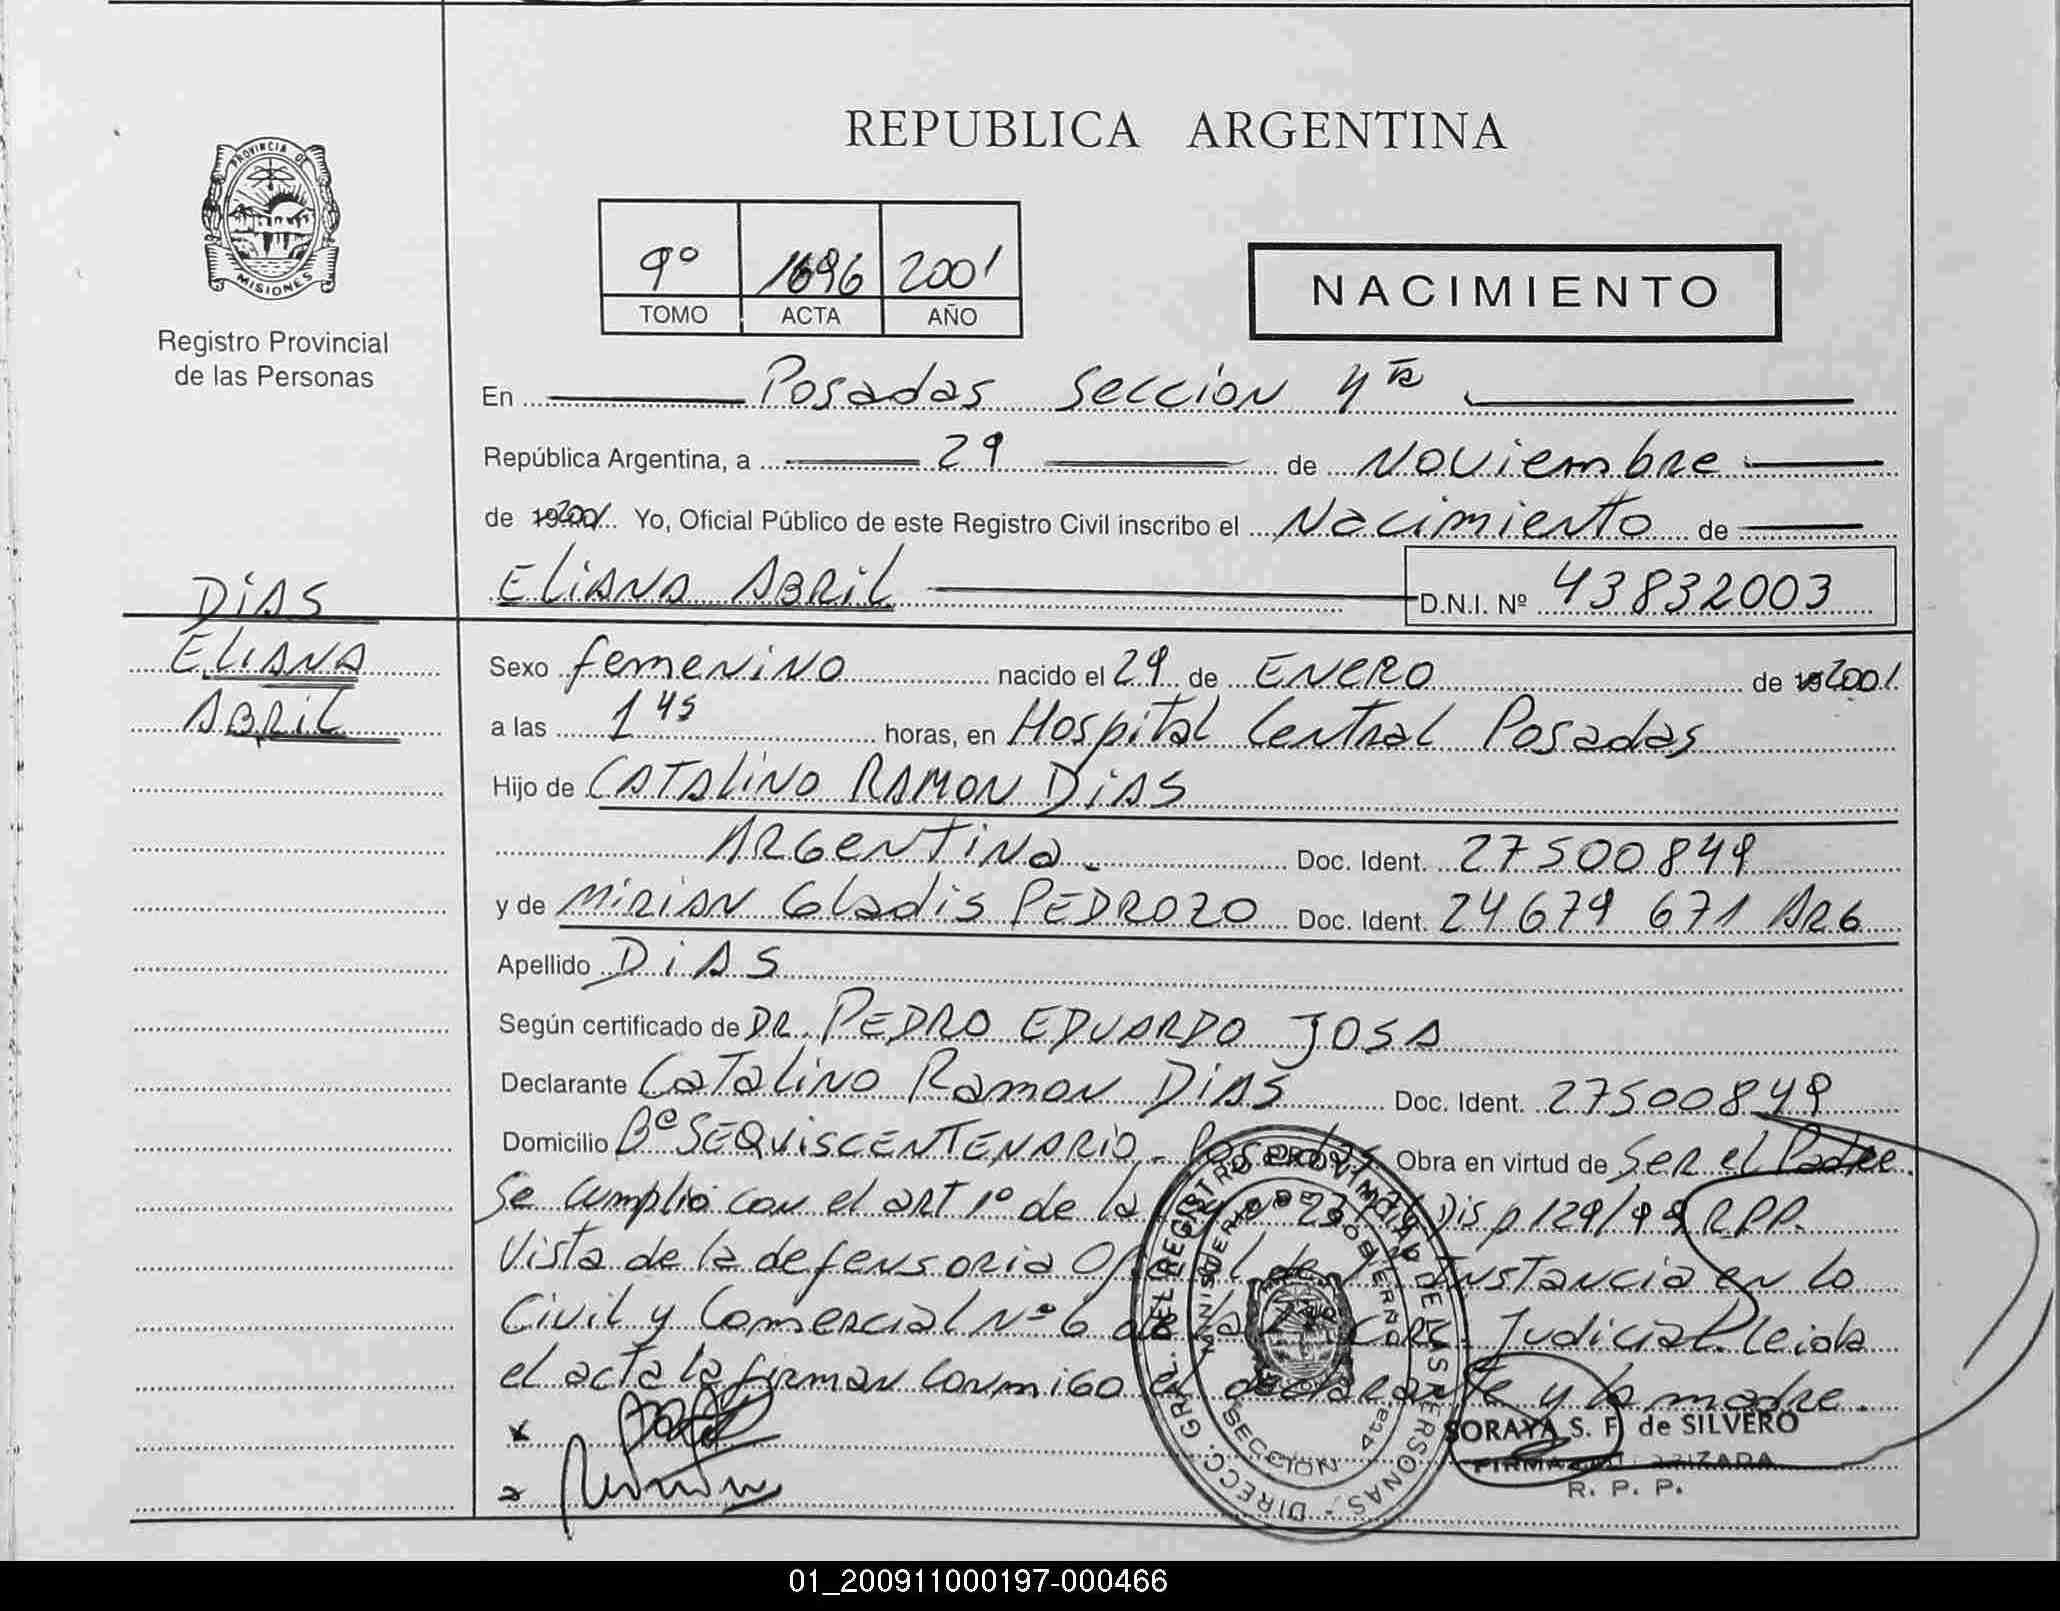 REPUBLICA ARGENTINA
PROVINCIA DE
MISIONES
Registro Provincial
de las Personas
9º 1696 2001
TOMO ACTA AÑO
NACIMIENTO
En Posadas Sección 4ta
República Argentina, a 29 de Noviembre
de 2001 Yo, Oficial Público de este Registro Civil inscribo el Nacimiento de
ELIANA ABRIL D.N.I. Nº 43832003
DIAS
ELIANA
ABRIL
Sexo femenino nacido el 29 de ENERO de 2001
a las 1 45 horas, en Hospital Central Posadas
Hijo de CATALINO RAMON DIAS
ARGENTINA. Doc. Ident. 27500849
y de MIRIAN Gladis PEDROZO Doc. Ident. 24679 671 ARG
Apellido DIAS
Según certificado de DR. PEDRO EDUARDO JOSA
Declarante Catalino Ramon DIAS Doc. Ident. 27500849
Domicilio Bº SEQUISCENTENARIO - Posadas Obra en virtud de Ser el Padre.
Se cumplio con el art 1º de la Disp 129/99 R.P.P.
Vista de la defensoria Oficial de Instancia en lo
Civil y Comercial Nº 6 de la Circ. Judicial. Leida
el acta la firman conmigo el declarante y la madre.
DIRECC. GRAL. DEL REGISTRO PROVINCIAL DE LAS PERSONAS
MINISTERIO DE GOBIERNO
SECCION 4ta
SORAYA S. F. de SILVERO
FIRMA AUTORIZADA
R. P. P.
01_200911000197-000466